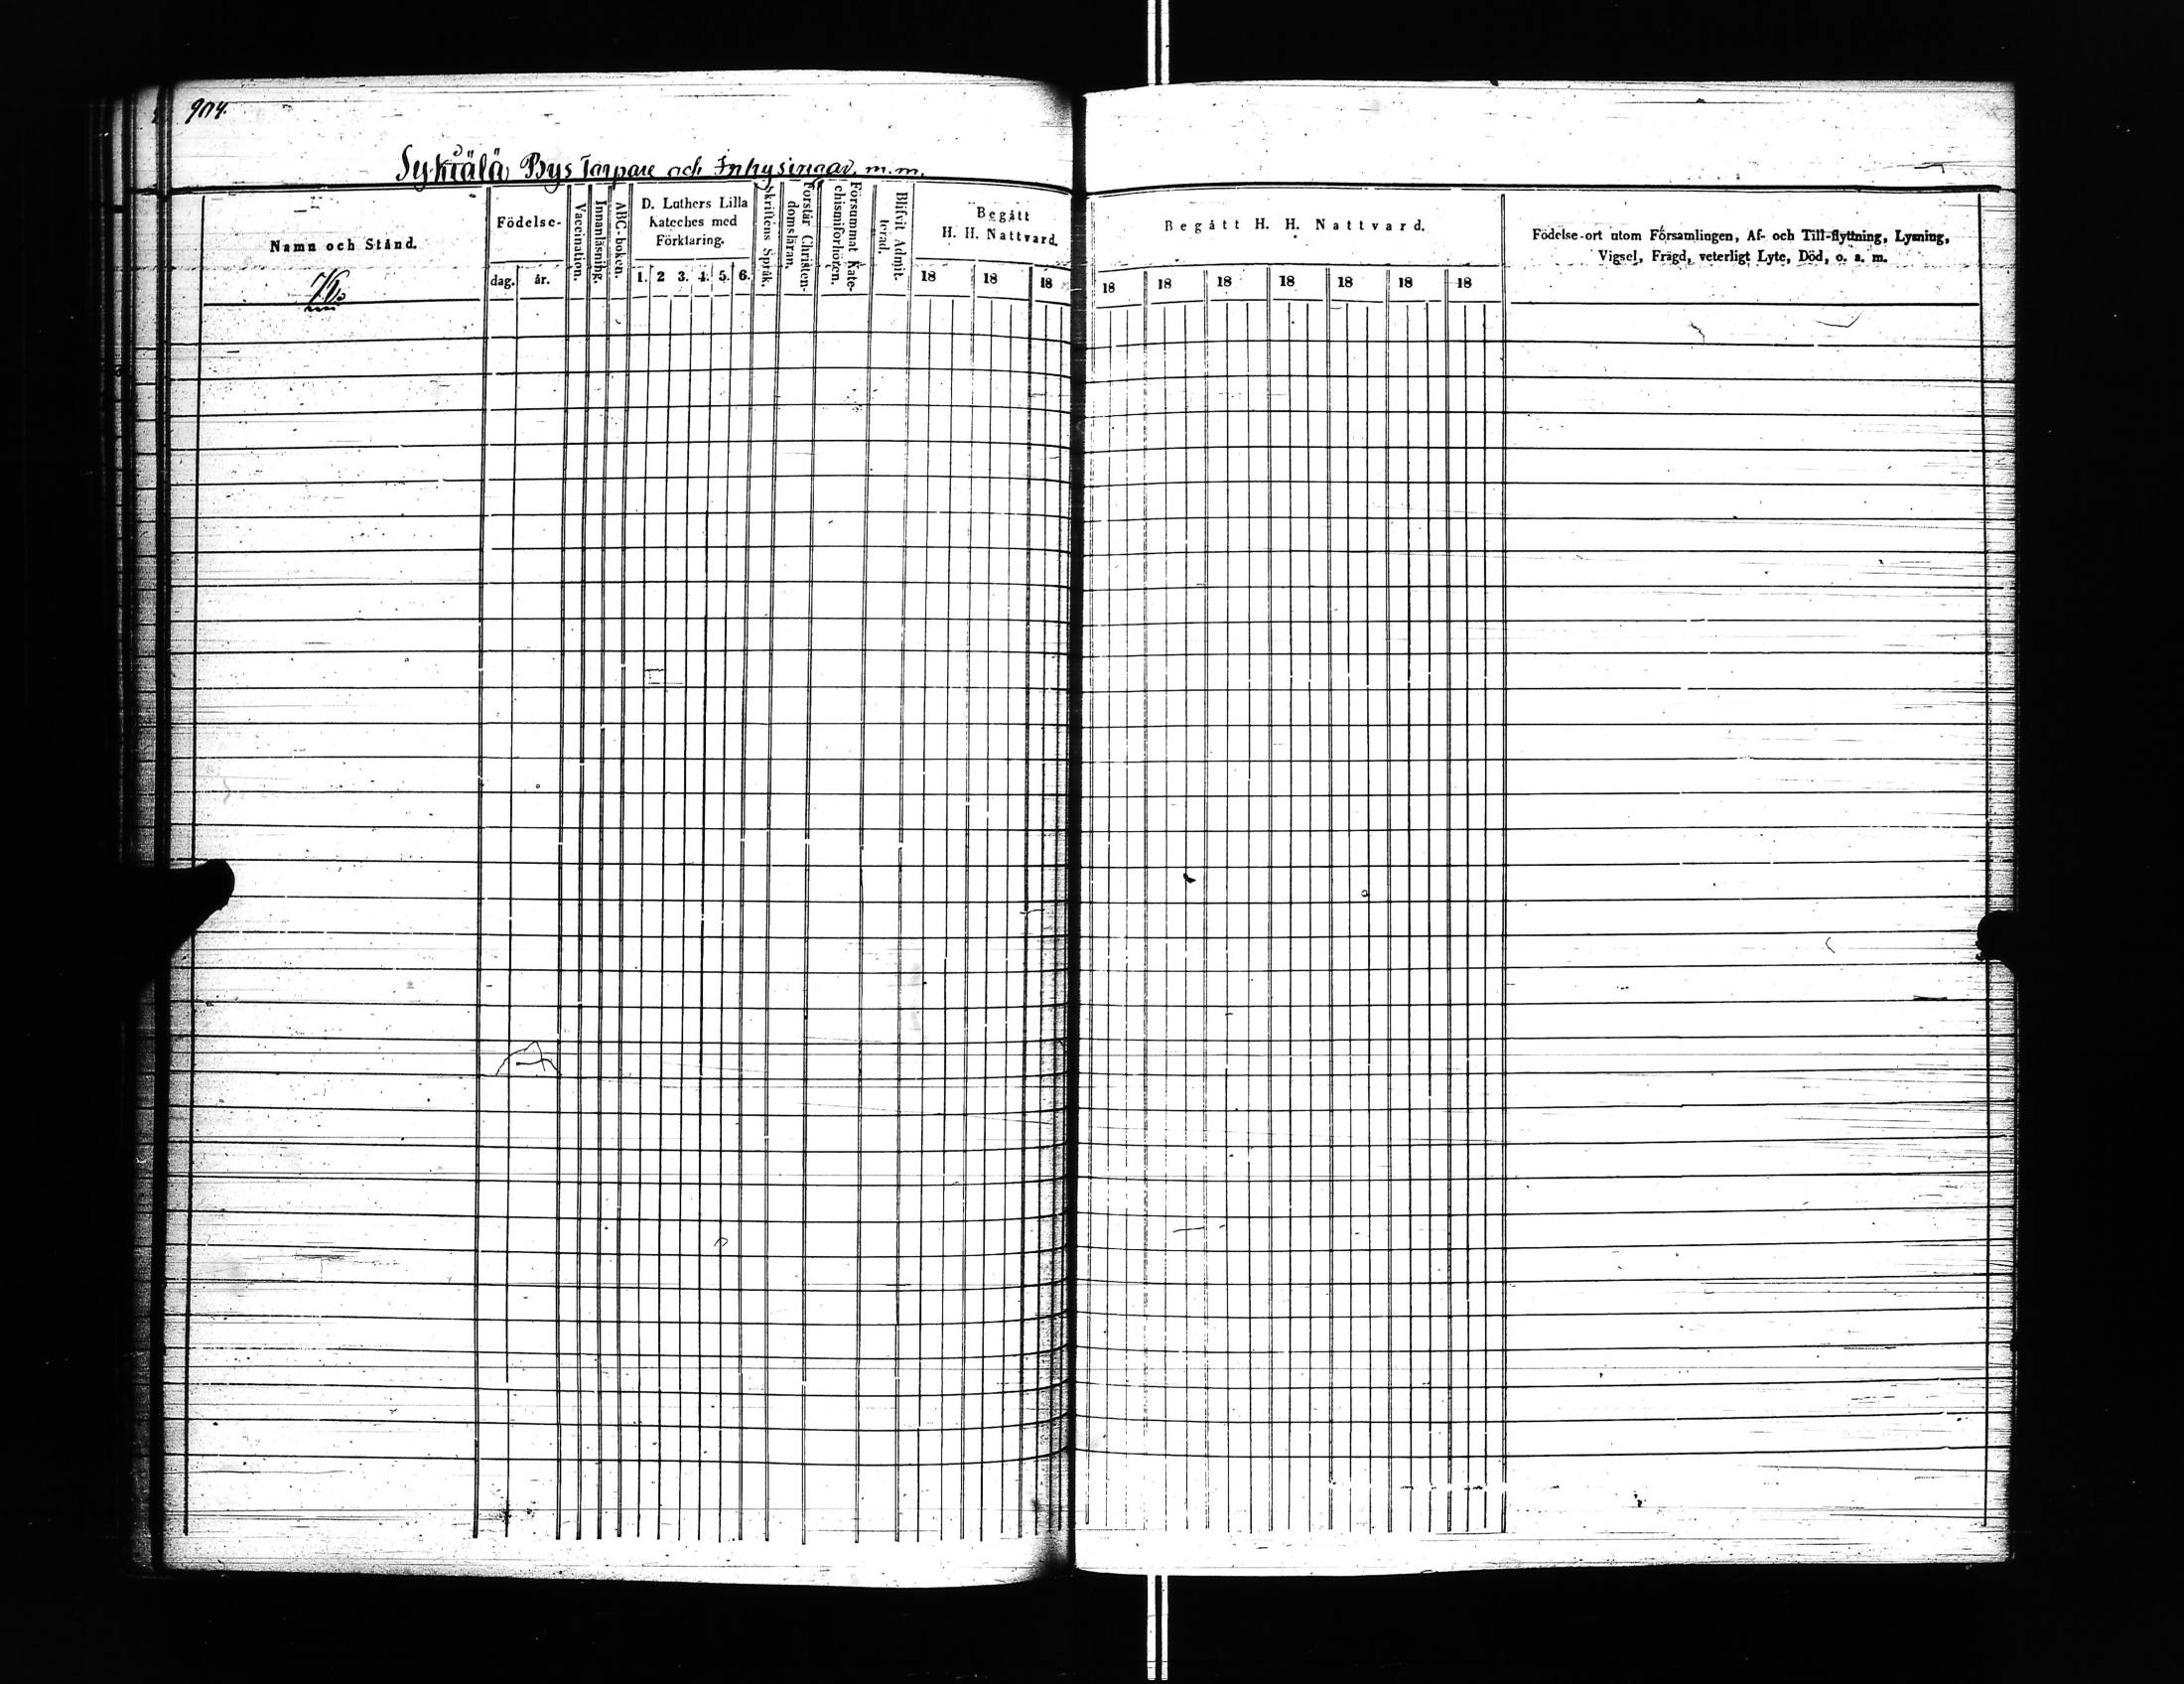 904.
Sykiälä Bys Torpare och Inhysingar, m.m.
Namn och Stånd.
Födelse-
dag. år.
Vaccination.
Innanläsning.
ABC-boken.
D. Luthers Lilla
Kateches med
Förklaring.
1. 2 3. 4. 5. 6.
Skriftens Språk.
Förstår Christen-
domsläran.
Försummat Kate-
chismiförhören.
Blifvit Admit-
terad.
Begått
H. H. Nattvard.
18 18 18
Begått H. H. Nattvard.
18 18 18 18 18 18 18
Födelse-ort utom Församlingen, Af- och Till-flyttning, Lysning,
Vigsel, Frägd, veterligt Lyte, Död, o. s. m.